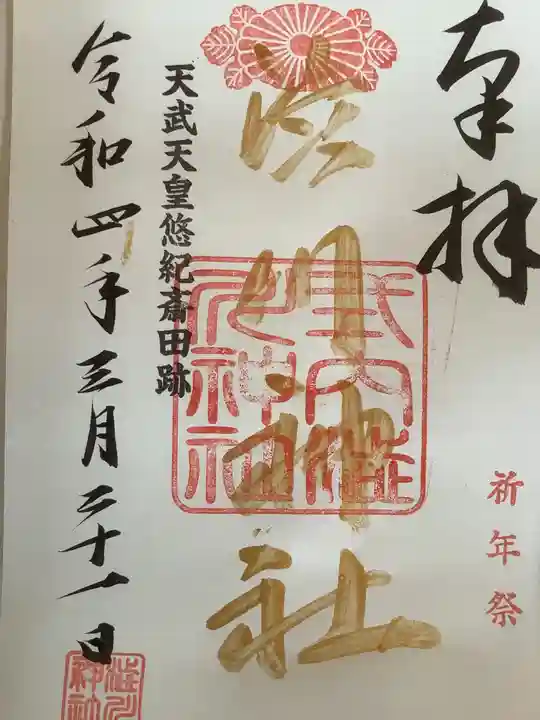 奉拝
祈年祭
渋川神社
式内澁
川神社
天武天皇悠紀斎田跡
令和四年三月二十一日
澁川
神社